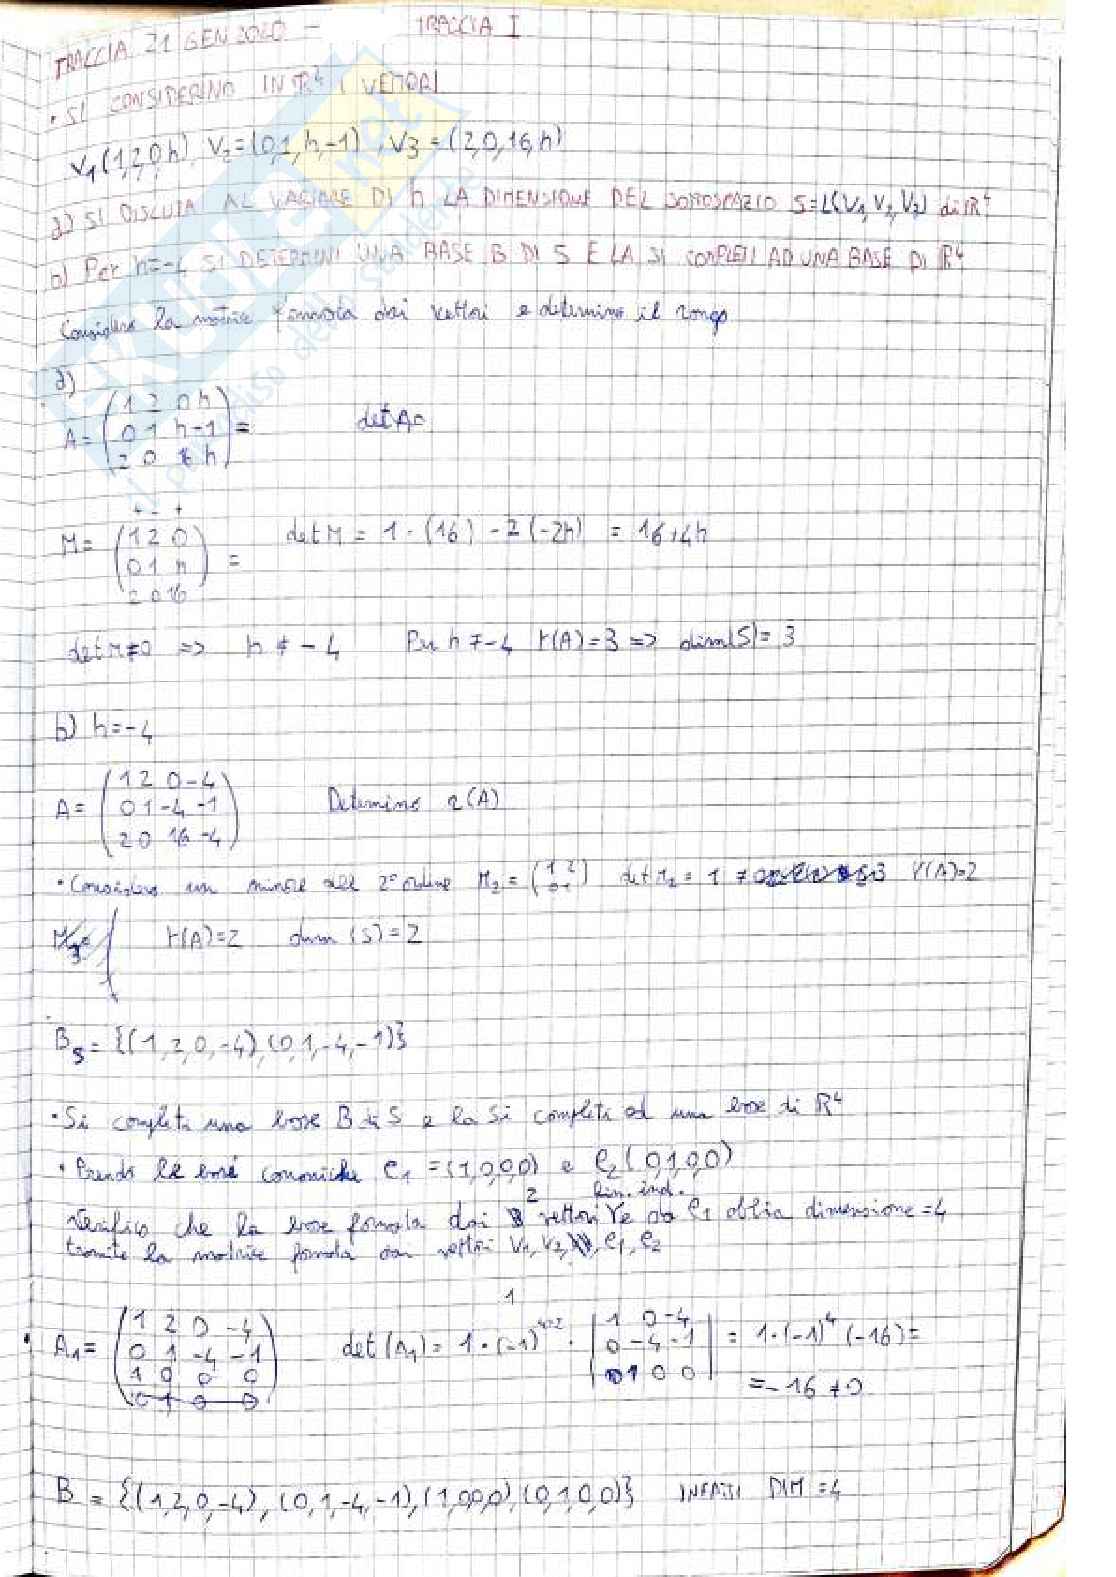 TRACCIA 21 GEN 2020 - TRACCIA I
• SI CONSIDERINO IN R⁴ I VETTORI
V₁(1,2,0,h) V₂=(0,1,h,-1), V₃=(2,0,16,h)
a) SI DISCUTA AL VARIARE DI h LA DIMENSIONE DEL SOTTOSPAZIO S=L(V₁,V₂,V₃) di R⁴
o) Per h=-4 SI DETERMINI UNA BASE B DI S E LA SI COMPLETI AD UNA BASE DI R⁴
Considero la matrice formata dai vettori e determino il rango
a)
A = (1 2 0 h
0 1 h -1
2 0 16 h) = det A=
+ - +
M = (1 2 0
0 1 h
2 0 16) = det M = 1 · (16) - 2(-2h) = 16+4h
det M≠0 => h ≠ -4 Per h≠-4 r(A)=3 => dim(S)=3
b) h=-4
A = (1 2 0 -4
0 1 -4 -1
2 0 16 -4) Determino r(A)
• Considero un minore del 2° ordine M₂ = (1 2
0 1) det M₂ = 1 ≠0 r(A)=2
M₃= r(A)=2 dim (S)=2
B_S = {(1,2,0,-4),(0,1,-4,-1)}
• Si completi una base B di S e la si completi ad una base di R⁴
• Prendo le basi canoniche e₁ = (1,0,0,0) e e₂(0,1,0,0)
lin. ind.
Verifico che la base formata dai 2 vettori e da e₁ abbia dimensione =4
tramite la matrice formata dai vettori V₁, V₂, e₁, e₂
• A₁= (1 2 0 -4
0 1 -4 -1
1 0 0 0
0 1 0 0) det(A₁) = 1 · (-1)⁴⁺² · |1 0 -4
0 -4 -1
1 0 0| = 1·(-1)⁴ (-16)=
=-16 ≠0
B = {(1,2,0,-4), (0,1,-4,-1),(1,0,0,0),(0,1,0,0)} INFATTI DIM =4
SKUOLA.net
il paradiso dello studente